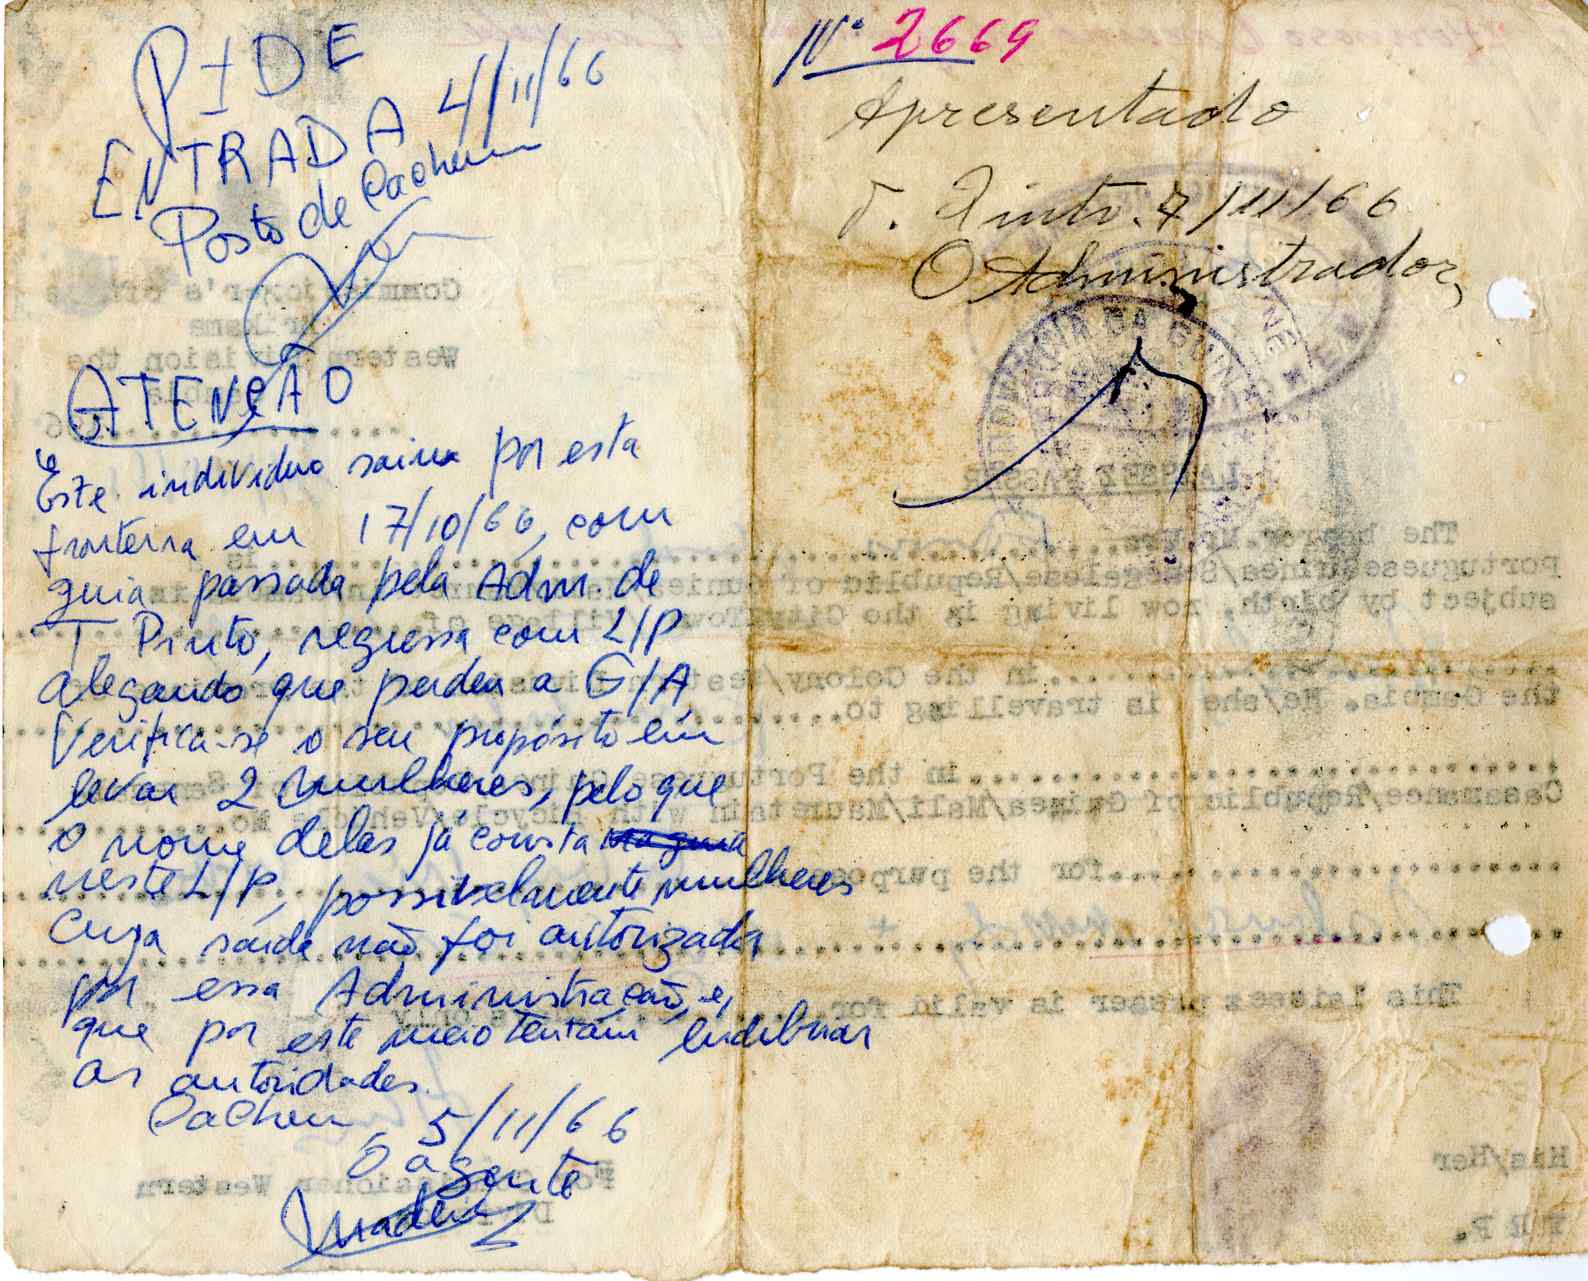 PIDE
ENTRADA 4/11/66
Posto de Cacheu
ATENÇÃO
Este individuo saiu por esta
fronteira em 17/10/66, com
guia passada pela Adm de
T. Pinto, regressa com L/P
alegando que perdeu a G/A
Verifica-se o seu propósito em
levar 2 mulheres, pelo que
o nome delas já consta na guia
neste L/P, possivelmente mulheres
cuja saída não foi autorizada
por essa Administração, e,
que por este meio tentam ludibriar
as autoridades.
Cacheu, 5/11/66
O agente
Nº 2669
Apresentado
T. Pinto. 7/11/66
O Administrador,
PROVINCIA DA GUINÉ
Commissioner's Office
Brikama
Western Division the
LAISSEZ PASSEZ
The bearer Mr/Mrs
Portuguese Guinea/Senegalese/Republic of Guinea
subject by birth, now living in the City/Town/Village of
in the Colony/Western Division
the Gambia. He/she is travelling to
in the Portuguese Guinea
Casamance/Republic of Guinea/Mali/Mauretain with Bicycle/Vehicle No.
for the purpose
This laissez passer is valid for only
His/Her
For Commissioner Western